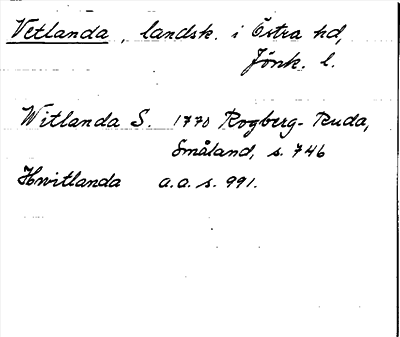 Vetlanda, landsk. i Östra hd,
Jönk. l.
Witlanda S. 1770 Rogberg-Ruda,
Småland, s. 746
Hwitlanda a.a. s. 991.